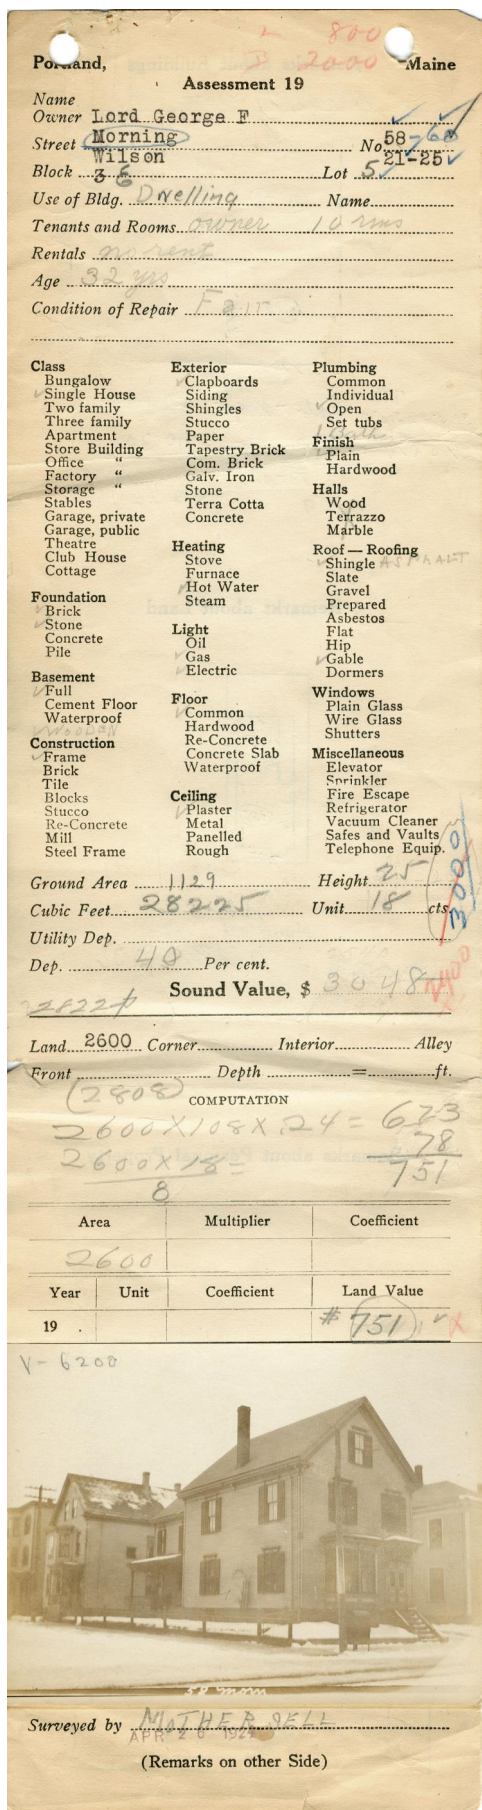 L 800
B 2000
Portland, Maine
Assessment 19
Name
Owner Lord George F
Street Morning No 58-60
Wilson 21-25
Block 3 6 Lot 5
Use of Bldg. Dwelling Name
Tenants and Rooms owner 10 rms
Rentals no rent
Age 32 yrs
Condition of Repair Fair
Class
Bungalow
Single House
Two family
Three family
Apartment
Store Building
Office "
Factory "
Storage "
Stables
Garage, private
Garage, public
Theatre
Club House
Cottage
Foundation
Brick
Stone
Concrete
Pile
Basement
Full
Cement Floor
Waterproof
WOODEN
Construction
Frame
Brick
Tile
Blocks
Stucco
Re-Concrete
Mill
Steel Frame
Exterior
Clapboards
Siding
Shingles
Stucco
Paper
Tapestry Brick
Com. Brick
Galv. Iron
Stone
Terra Cotta
Concrete
Heating
Stove
Furnace
Hot Water
Steam
Light
Oil
Gas
Electric
Floor
Common
Hardwood
Re-Concrete
Concrete Slab
Waterproof
Ceiling
Plaster
Metal
Panelled
Rough
Plumbing
Common
Individual
Open
Set tubs
1 Bath
Finish
Plain
Hardwood
Halls
Wood
Terrazzo
Marble
Roof — Roofing
Shingle ASPHALT
Slate
Gravel
Prepared
Asbestos
Flat
Hip
Gable
Dormers
Windows
Plain Glass
Wire Glass
Shutters
Miscellaneous
Elevator
Sprinkler
Fire Escape
Refrigerator
Vacuum Cleaner
Safes and Vaults
Telephone Equip.
3000
Ground Area 1129 Height 25
Cubic Feet 28225 Unit 18 cts.
Utility Dep.
Dep. 40 Per cent.
2400
Sound Value, $ 3048
Land 2600 Corner Interior Alley
Front Depth = ft.
(2808)
COMPUTATION
2600 X 108 X .24 = 673
2600 X 18 = 78
8
751
Area Multiplier Coefficient
2600
Year Unit Coefficient Land Value
19 # 751
V- 6200
58 Morn
Surveyed by MOTHERSELL
APR 26 1924
(Remarks on other Side)